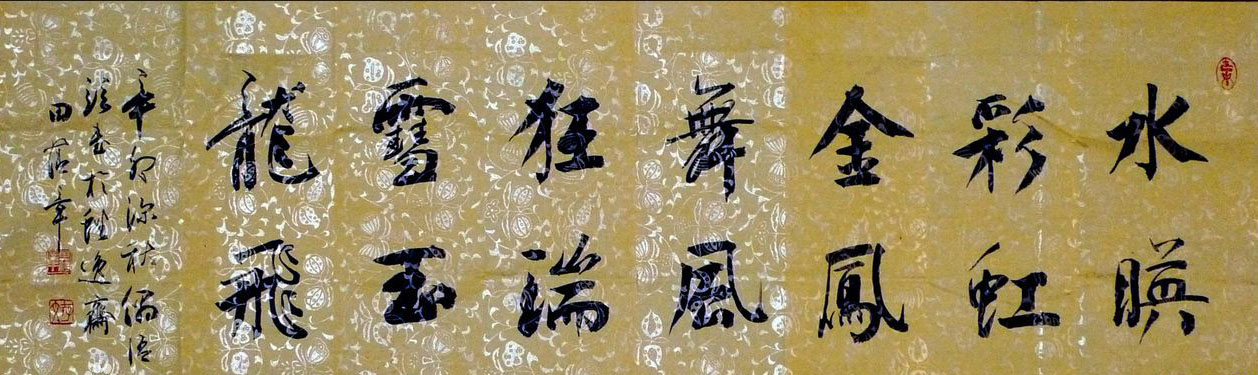 水暎
彩虹
金鳳
舞風
狂瑞
雪玉
龍飛
辛卯深秋偶
於逸齋
田章